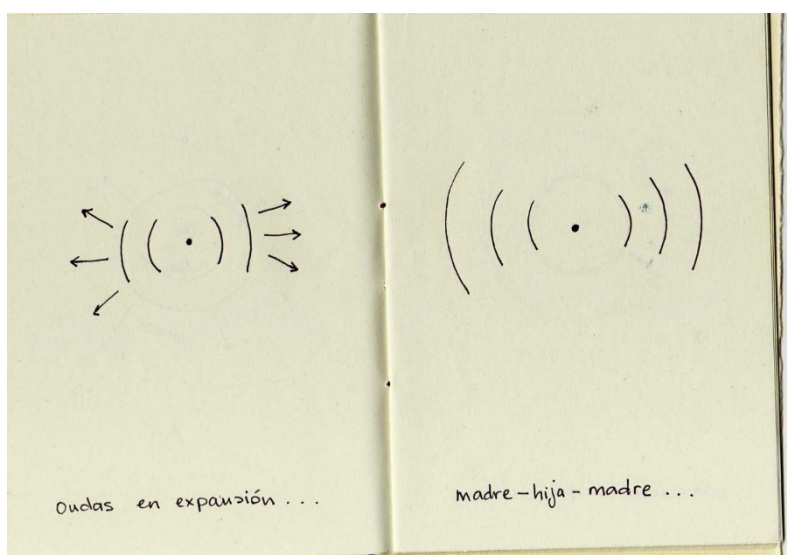 ondas en expansión ...
madre - hija - madre ...